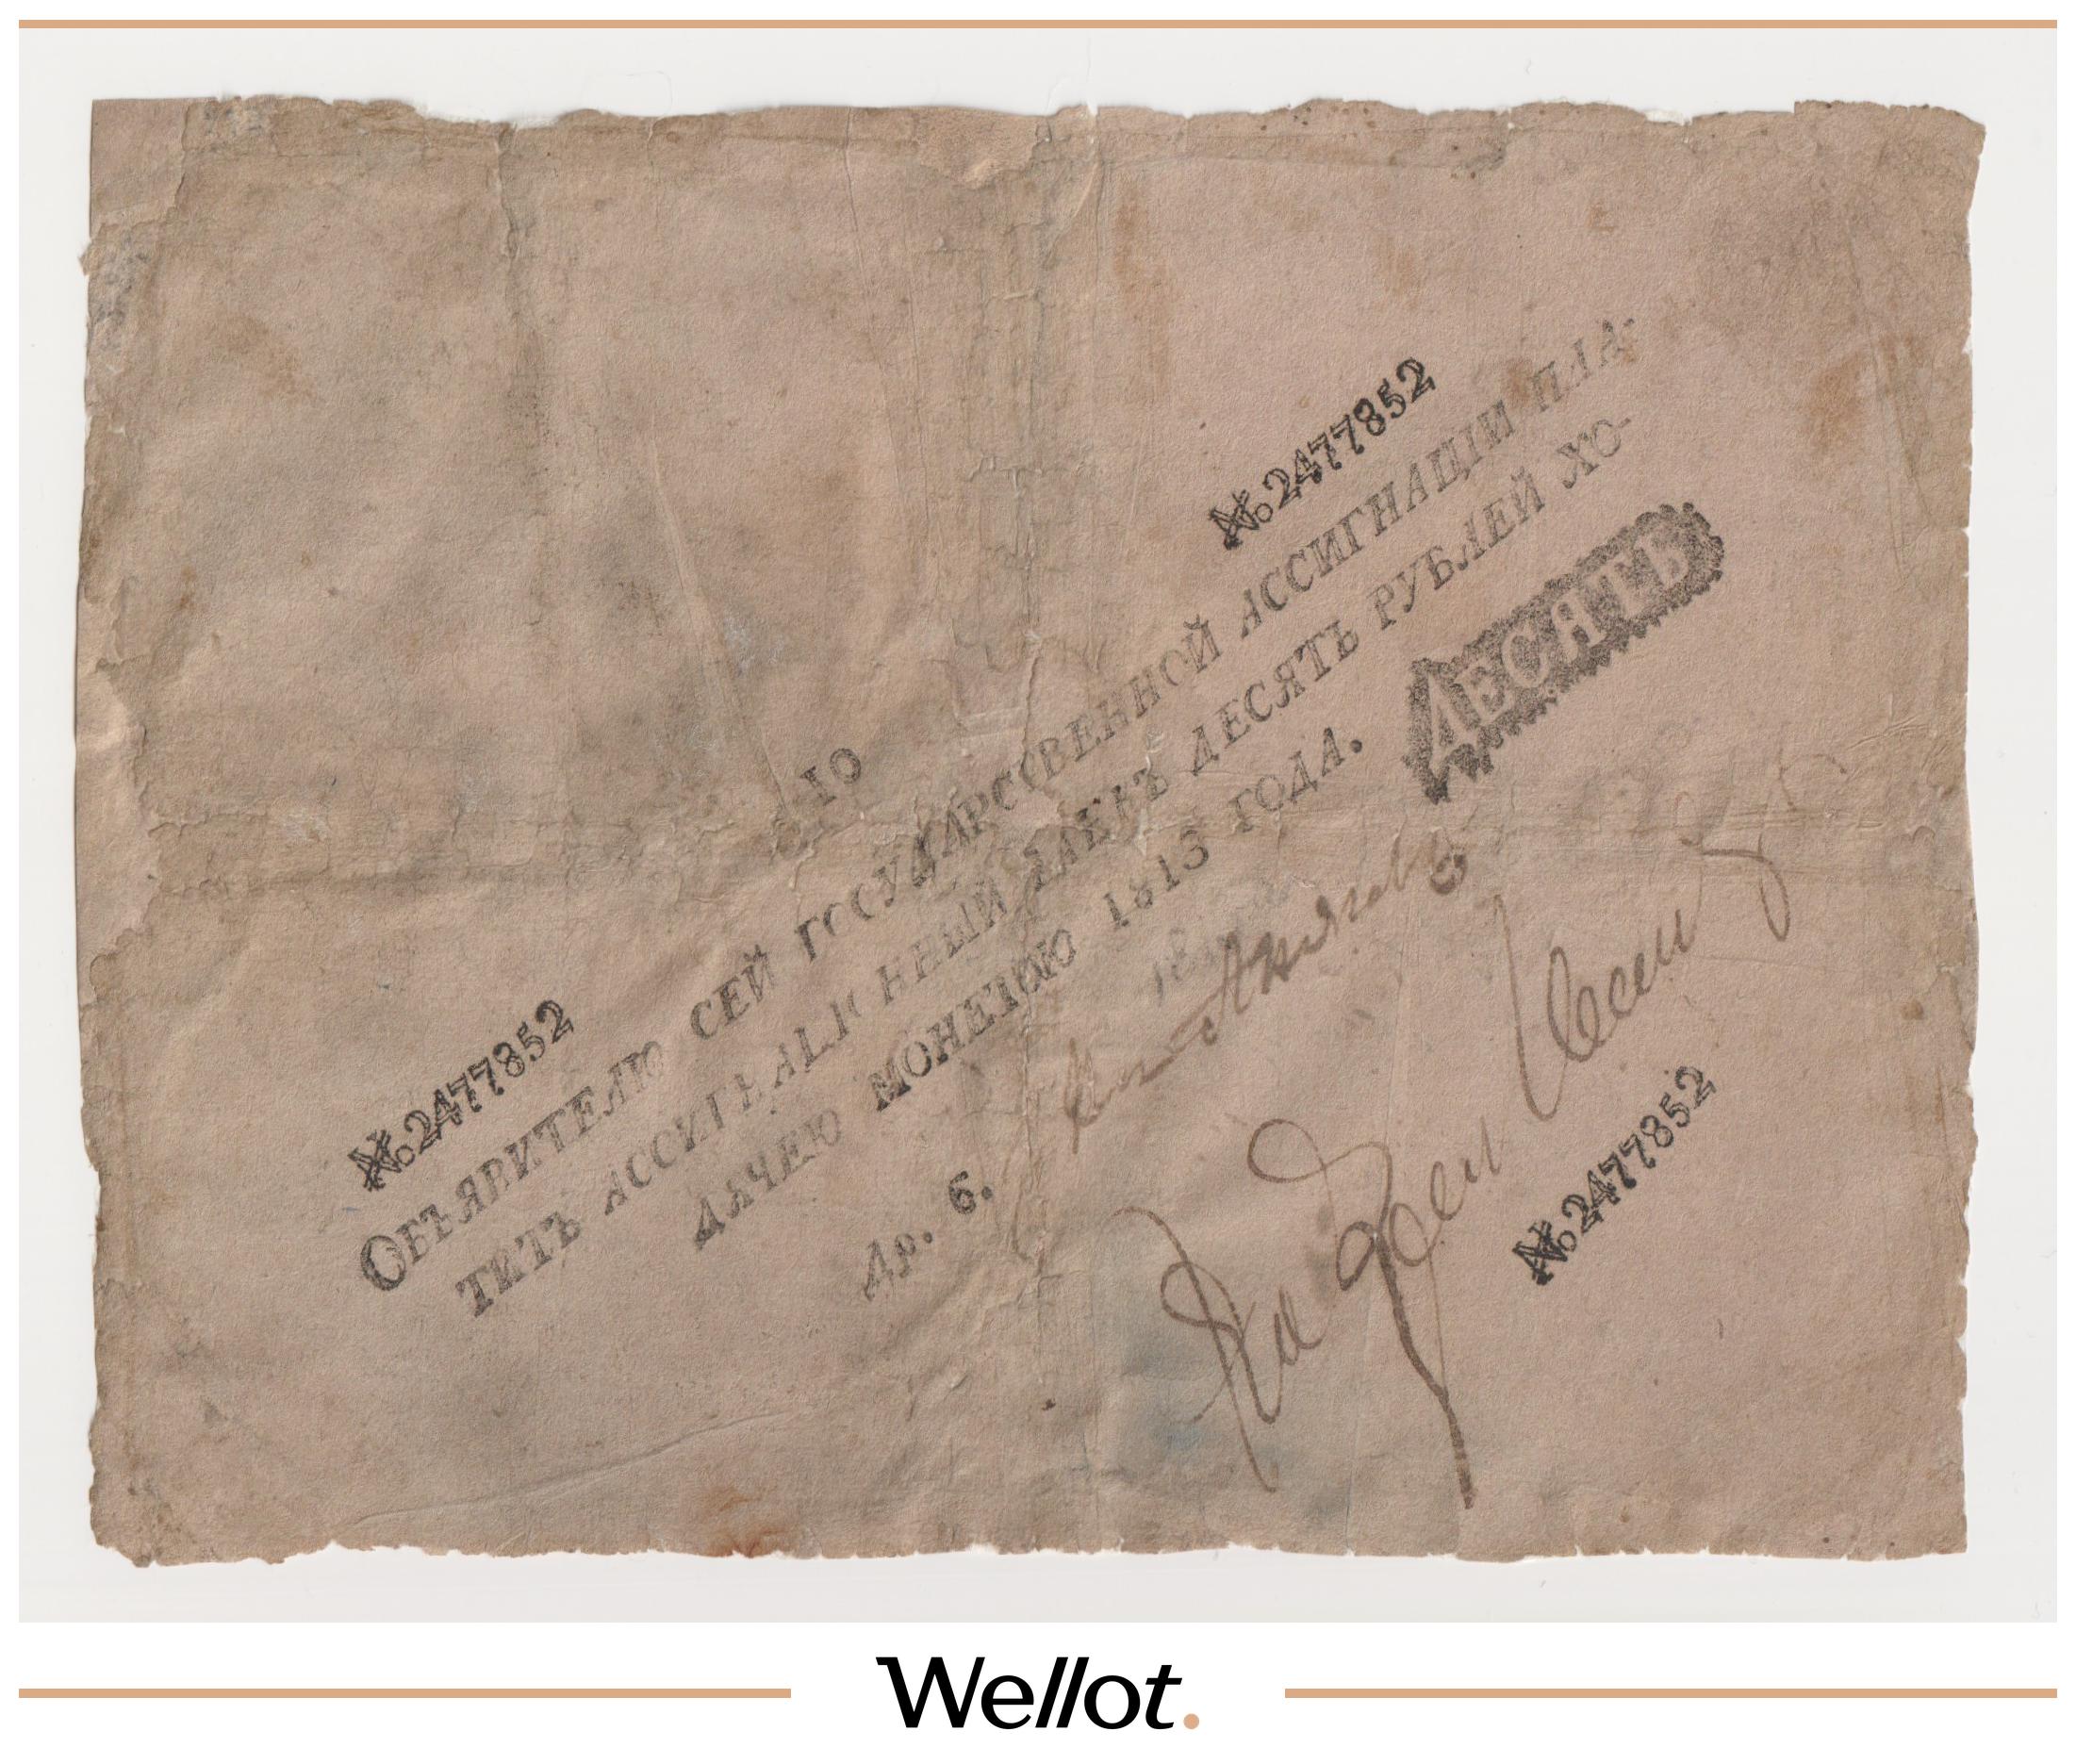 №2477852
10
№2477852
Объявителю сей государсственной ассигнаціи пла-
титъ ассигнаціонный банкъ десять рублей хо-
дячею монетою 1813 года.
Десять
Др. 6.
№2477852
Wellot.